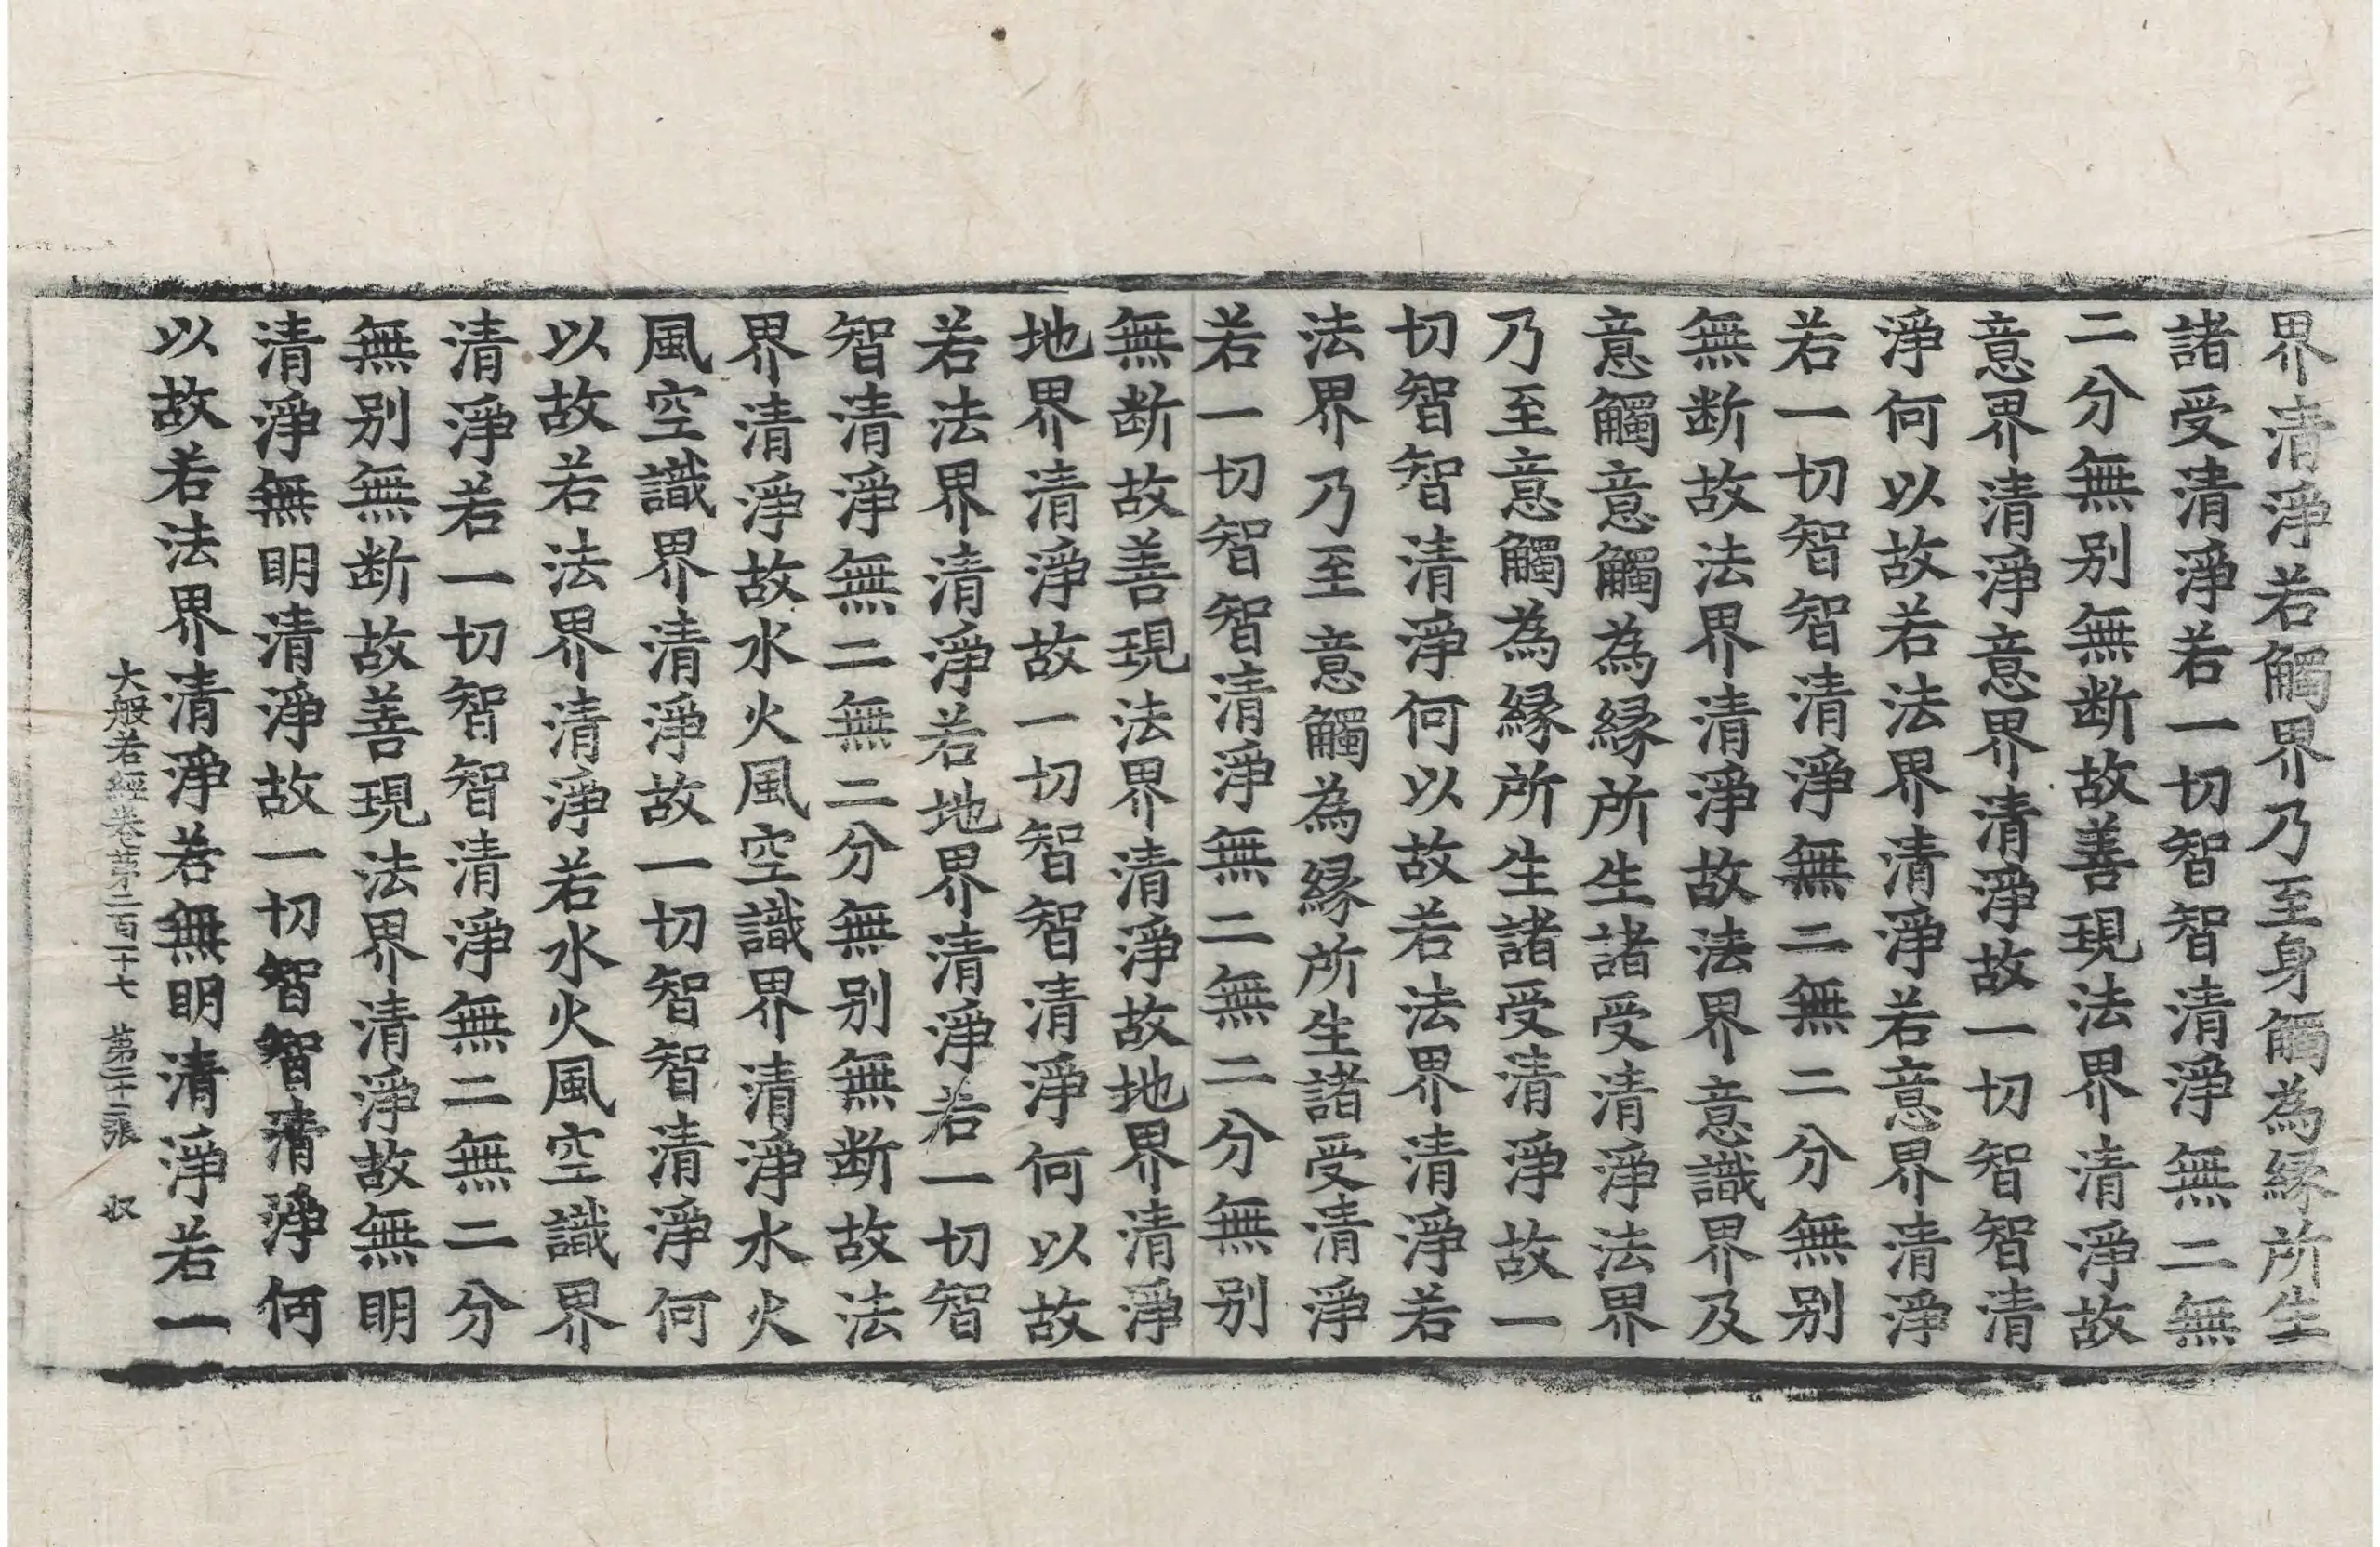 界清淨若觸界乃至身觸為緣所生
諸受清淨若一切智智清淨無二無
二分無別無斷故善現法界清淨故
意界清淨意界清淨故一切智智清
淨何以故若法界清淨若意界清淨
若一切智智清淨無二無二分無別
無斷故法界清淨故法界意識界及
意觸意觸為緣所生諸受清淨法界
乃至意觸為緣所生諸受清淨故一
切智智清淨何以故若法界清淨若
法界乃至意觸為緣所生諸受清淨
若一切智智清淨無二無二分無別
無斷故善現法界清淨故地界清淨
地界清淨故一切智智清淨何以故
若法界清淨若地界清淨若一切智
智清淨無二無二分無別無斷故法
界清淨故水火風空識界清淨水火
風空識界清淨故一切智智清淨何
以故若法界清淨若水火風空識界
清淨若一切智智清淨無二無二分
無別無斷故善現法界清淨故無明
清淨無明清淨故一切智智清淨何
以故若法界清淨若無明清淨若一
大般若經卷第二百二十七 第二十二張 奴